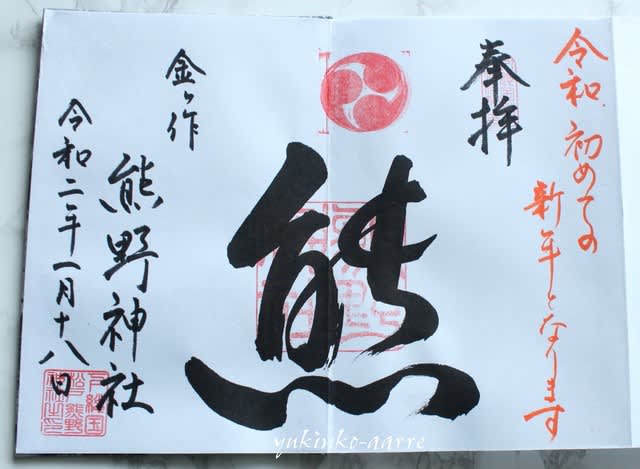 令和初めての
新年となります
奉拝
熊
金ヶ作
熊野神社
令和二年一月十八日
yukinko-aarre